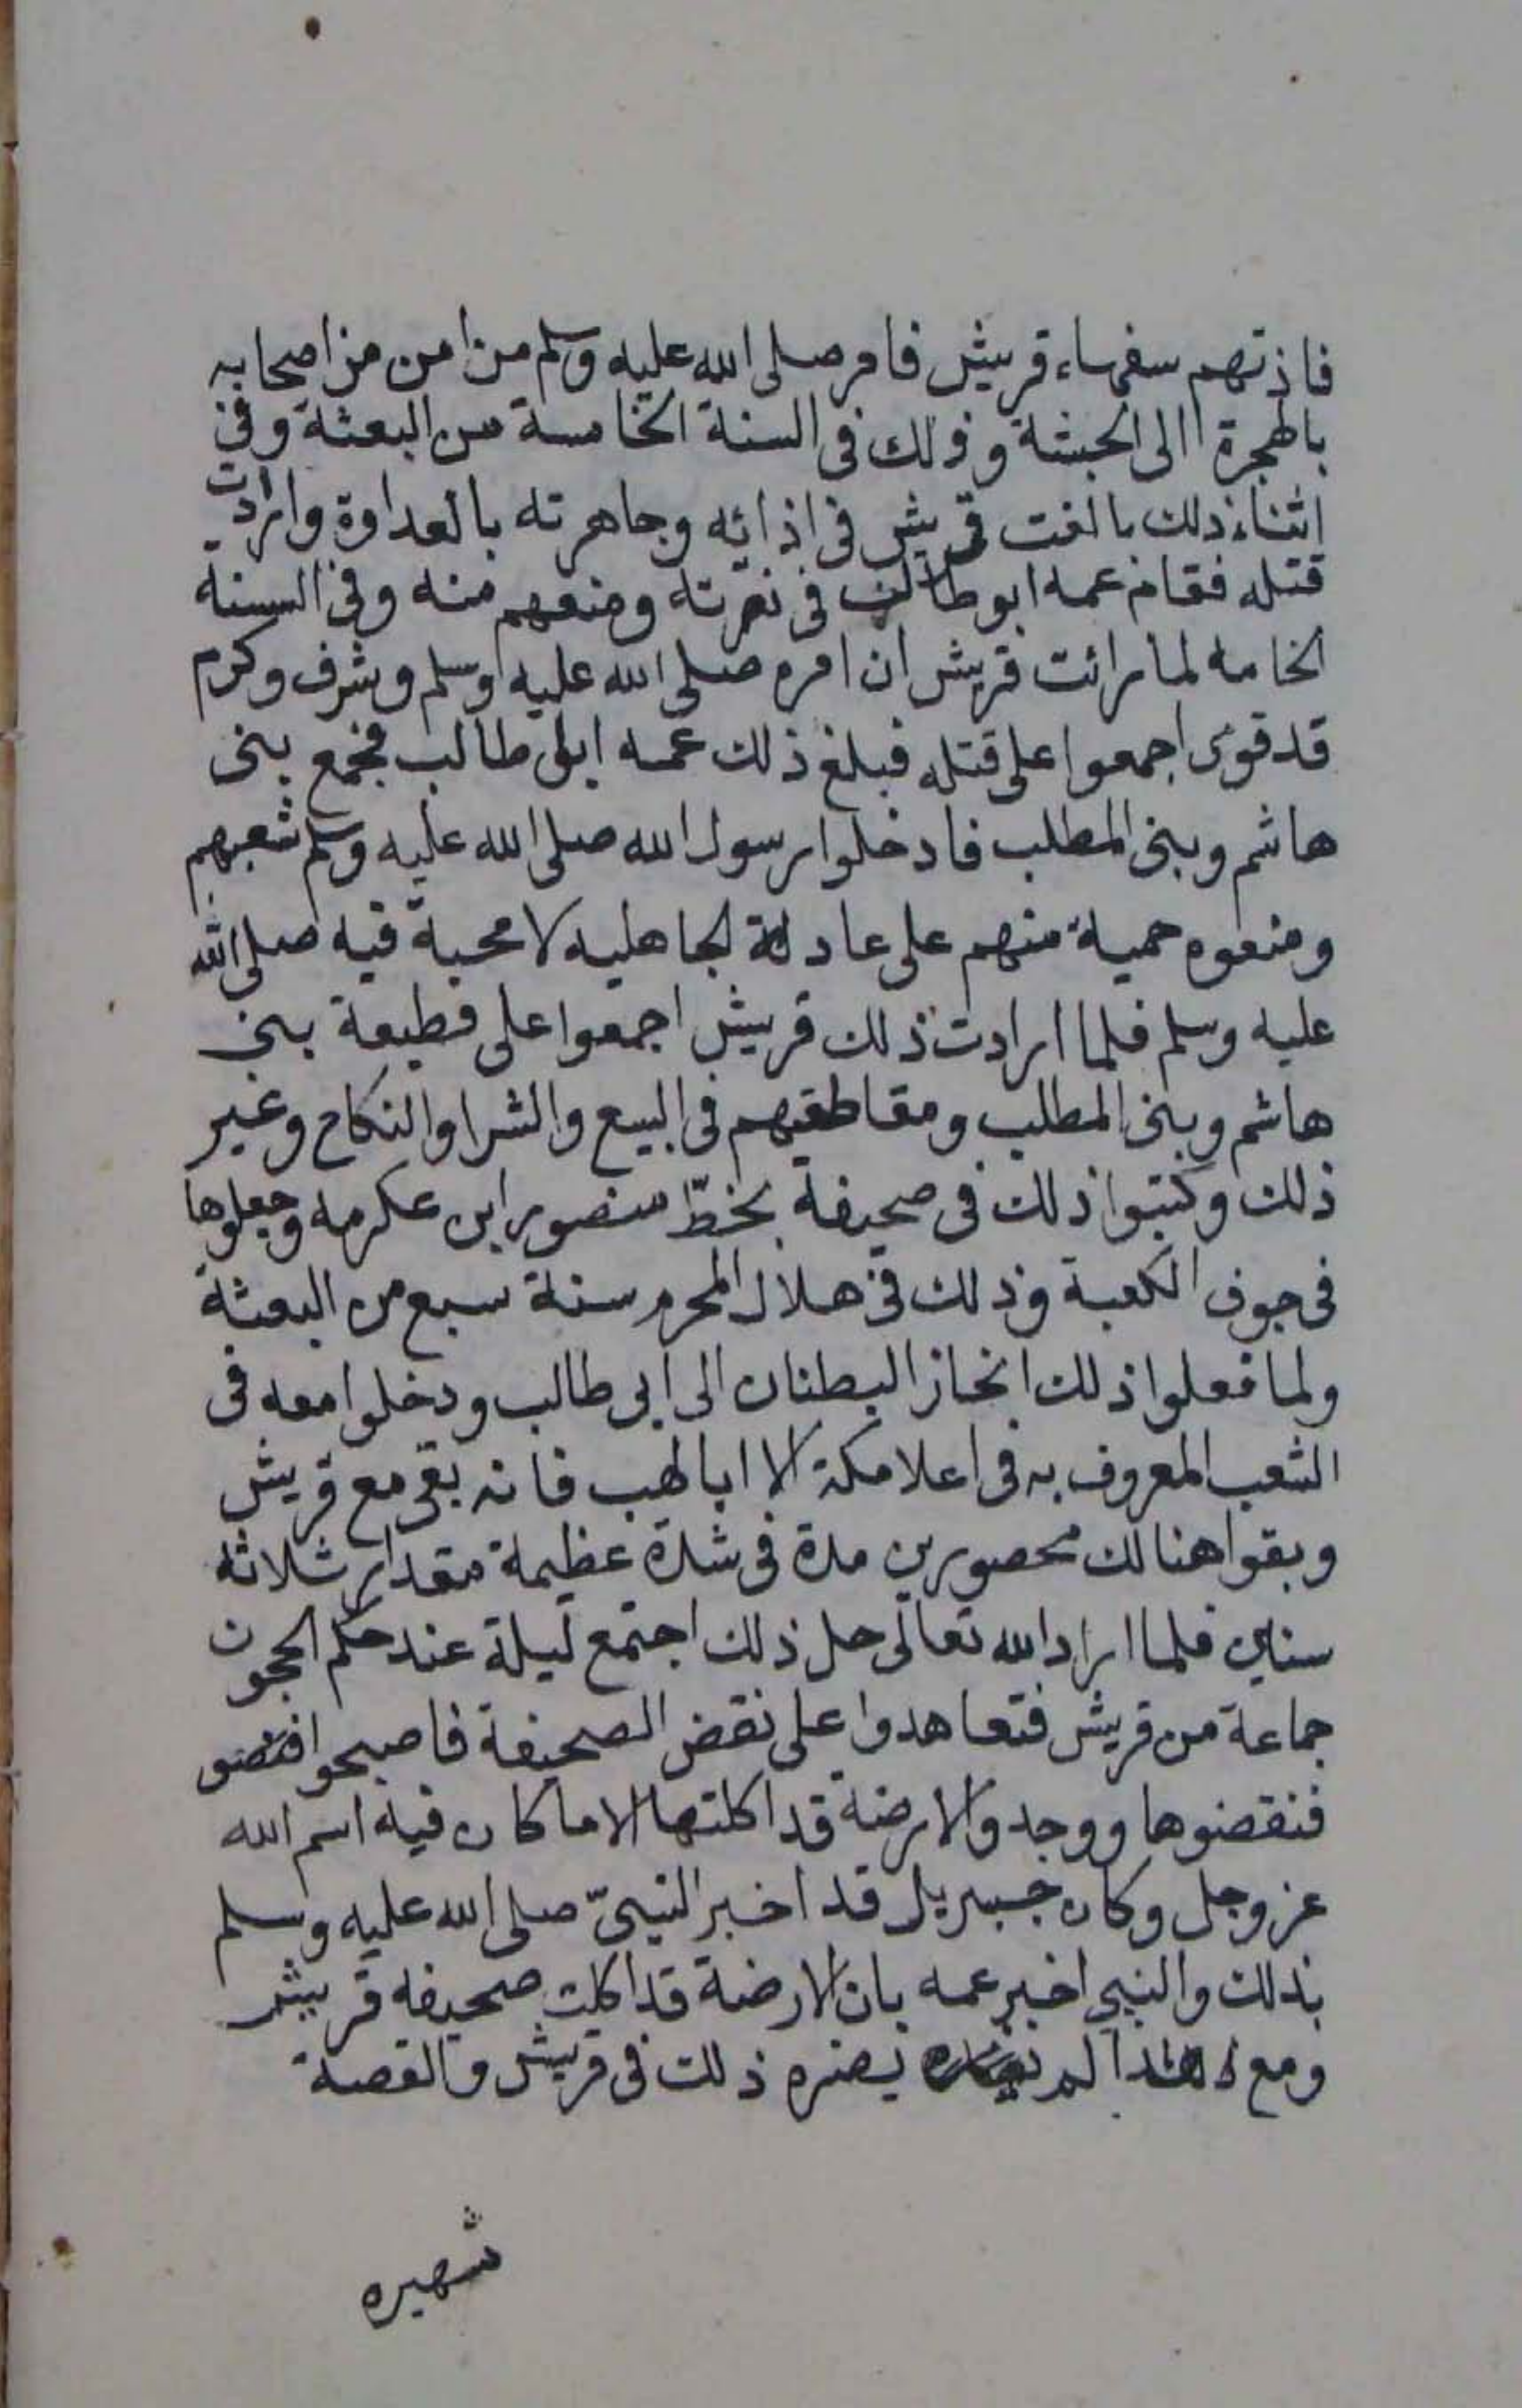 فاذتهم سفهاء قريش فامر صلى الله عليه وسلم من امن من اصحابه
بالهجرة الى الحبشة وذلك فى السنة الخامسة من البعثة وفى
اثناء ذلك بالغت قريش فى اذائه وجاهرته بالعداوة وارادت
قتله فقام عمه ابو طالب فى نصرته ومنعهم منه وفى السنة
الخامه لما رائت قريش ان امره صلى الله عليه وسلم وشرف وكرم
قد قوى اجمعوا على قتله فبلغ ذلك عمه ابى طالب فجمع بنى
هاشم وبنى المطلب فادخلوا رسول الله صلى الله عليه وسلم شعبهم
ومنعوه حمية منهم على عادة لجاهليه لا محبة فيه صلى الله
عليه وسلم فلما ارادت ذلك قريش اجمعوا على قطيعة بنى
هاشم وبنى المطلب ومقاطعتهم فى البيع والشرا والنكاح وغير
ذلك وكتبوا ذلك فى صحيفة بخطّ منصور ابن عكرمه وجعلوها
فى جوف الكعبة وذلك فى هلال المحرم سنة سبع من البعثة
ولما فعلوا ذلك انحاز البطنان الى ابى طالب ودخلوا معه فى
الشعب المعروف به فى اعلا مكة الا ابا لهب فانه بقى مع قريش
وبقوا هنالك محصورين مدة فى شدة عظيمة مقدار ثلاثة
سنين فلما اراد الله تعالى حل ذلك اجتمع ليلة عند حكم الحجون
جماعة من قريش فتعاهدوا على نقض الصحيفة فاصبحوا
فنقضوها ووجدوا الارضة قد اكلتها الا ما كان فيه اسم الله
عز وجل وكان جبريل قد اخبر النبىّ صلى الله عليه وسلم
بذلك والنبى اخبر عمه بان الارضة قد اكلت صحيفه قريش
ومع هذا لم يضره ذلك فى قريش والقصة
شهيره